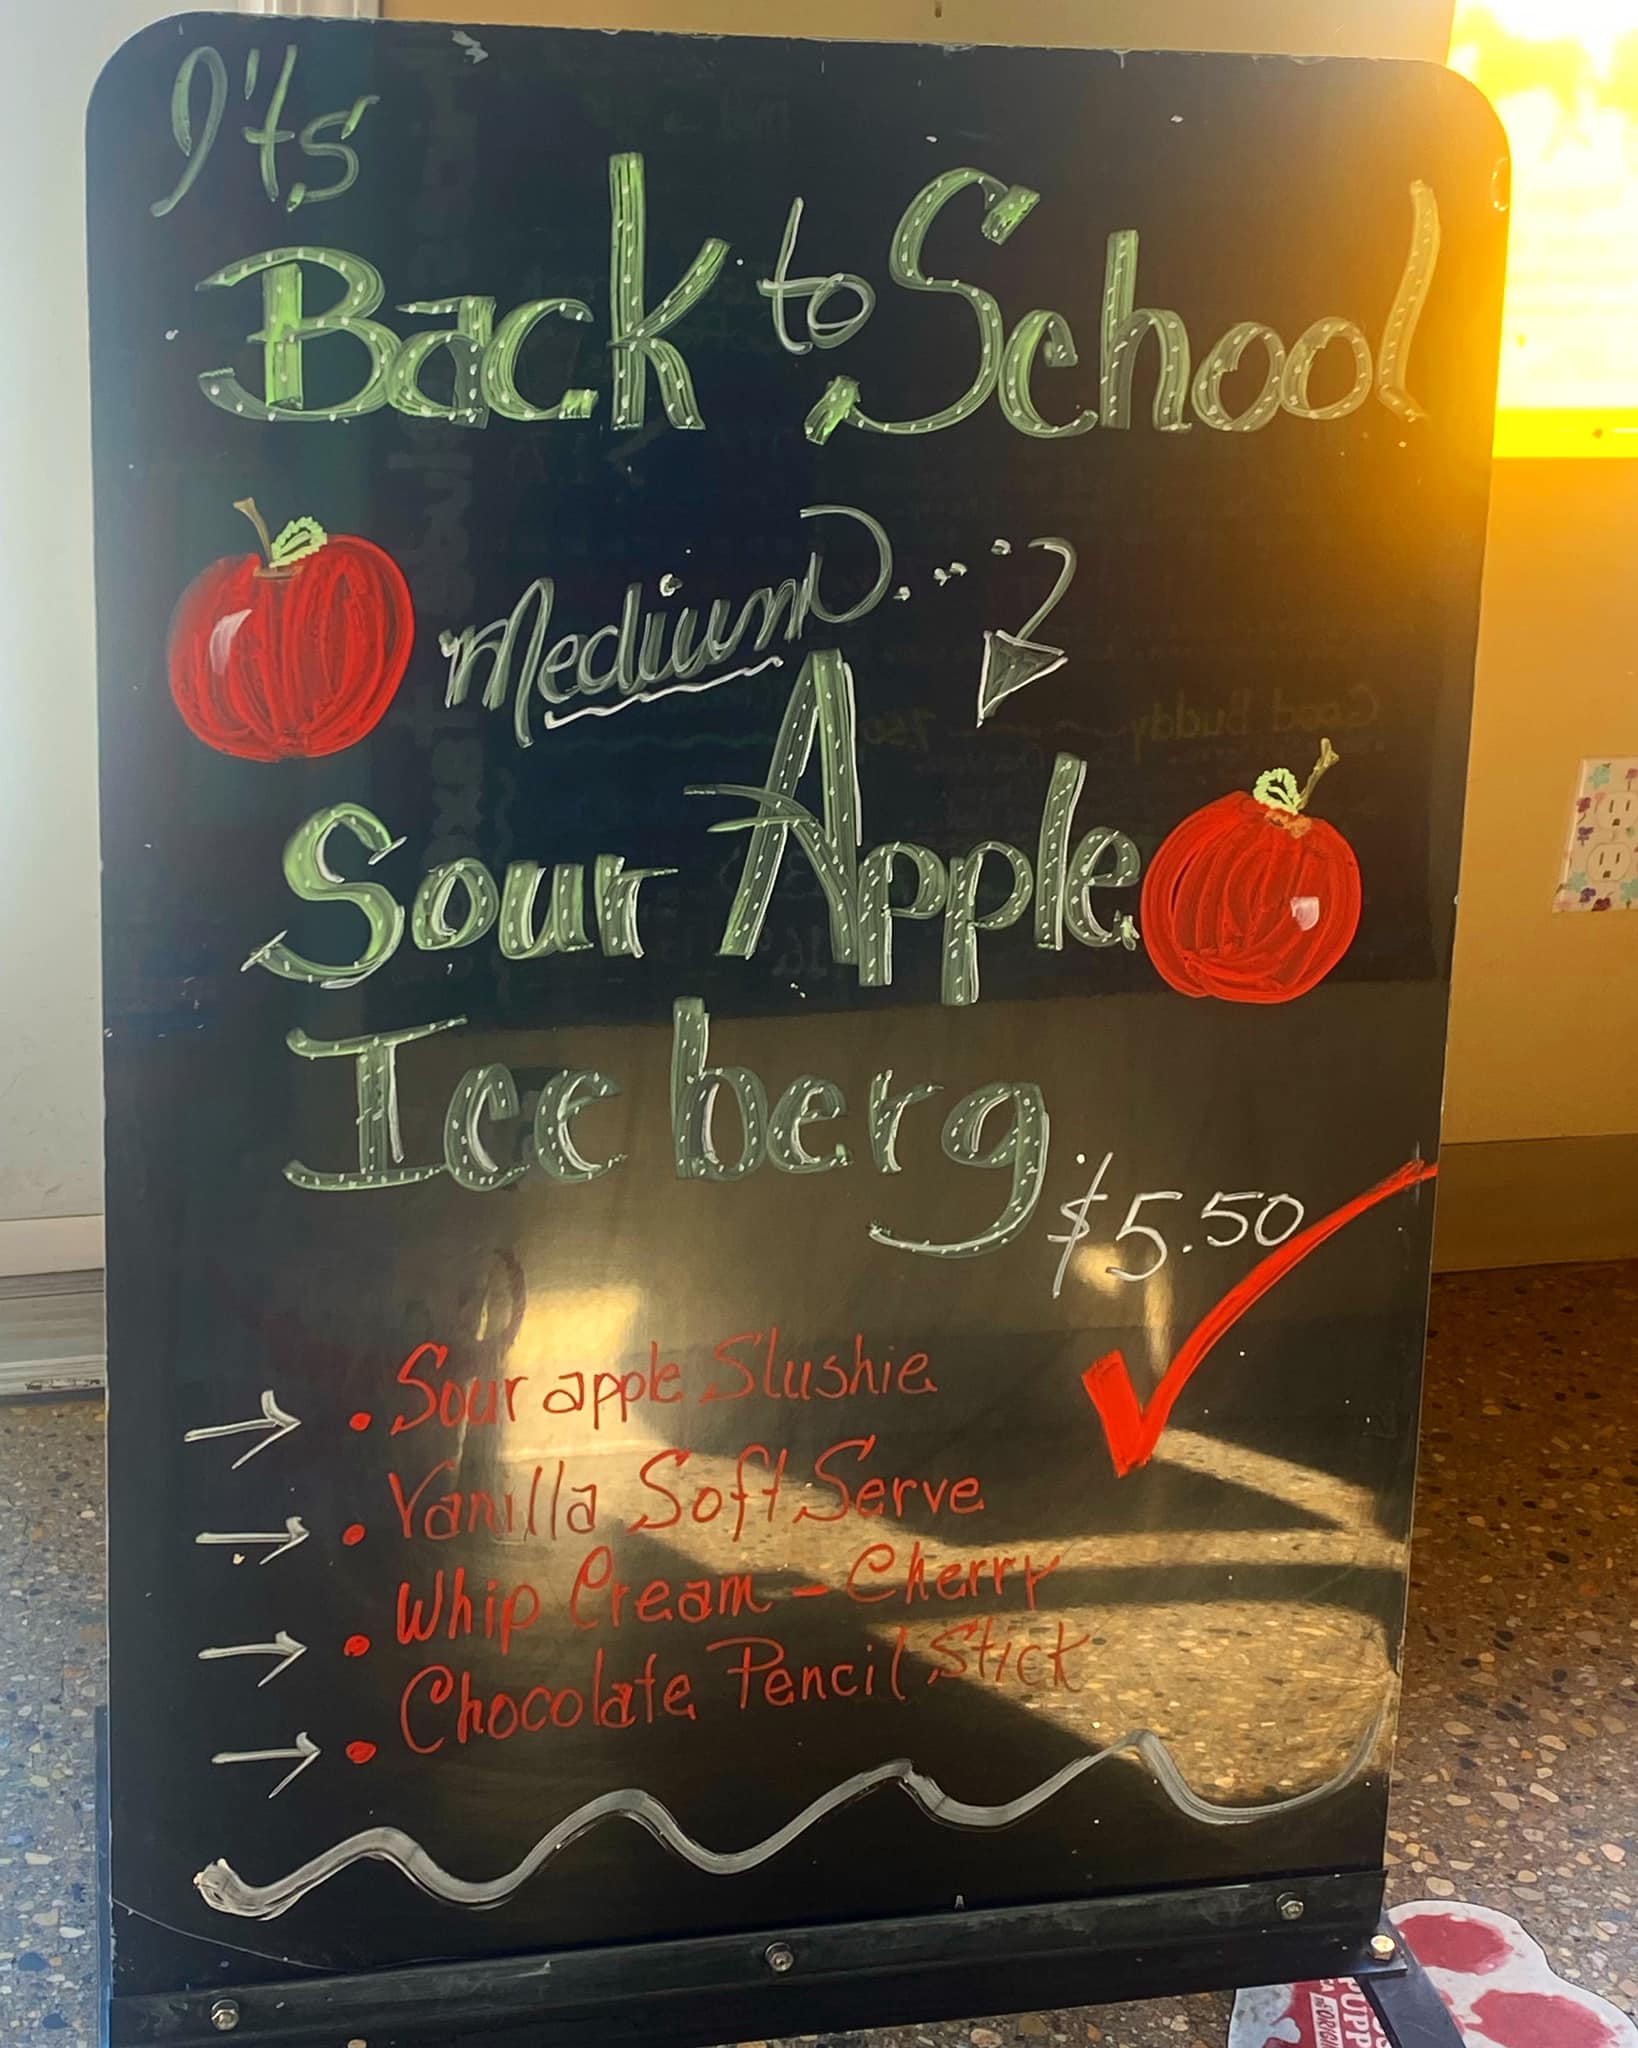 It's
Back to School
Medium....
Sour Apple
Ice berg
$5.50
Sour apple Slushie
Vanilla Soft Serve
Whip Cream - Cherry
Chocolate Pencil Stick
Good Buddy 7.50